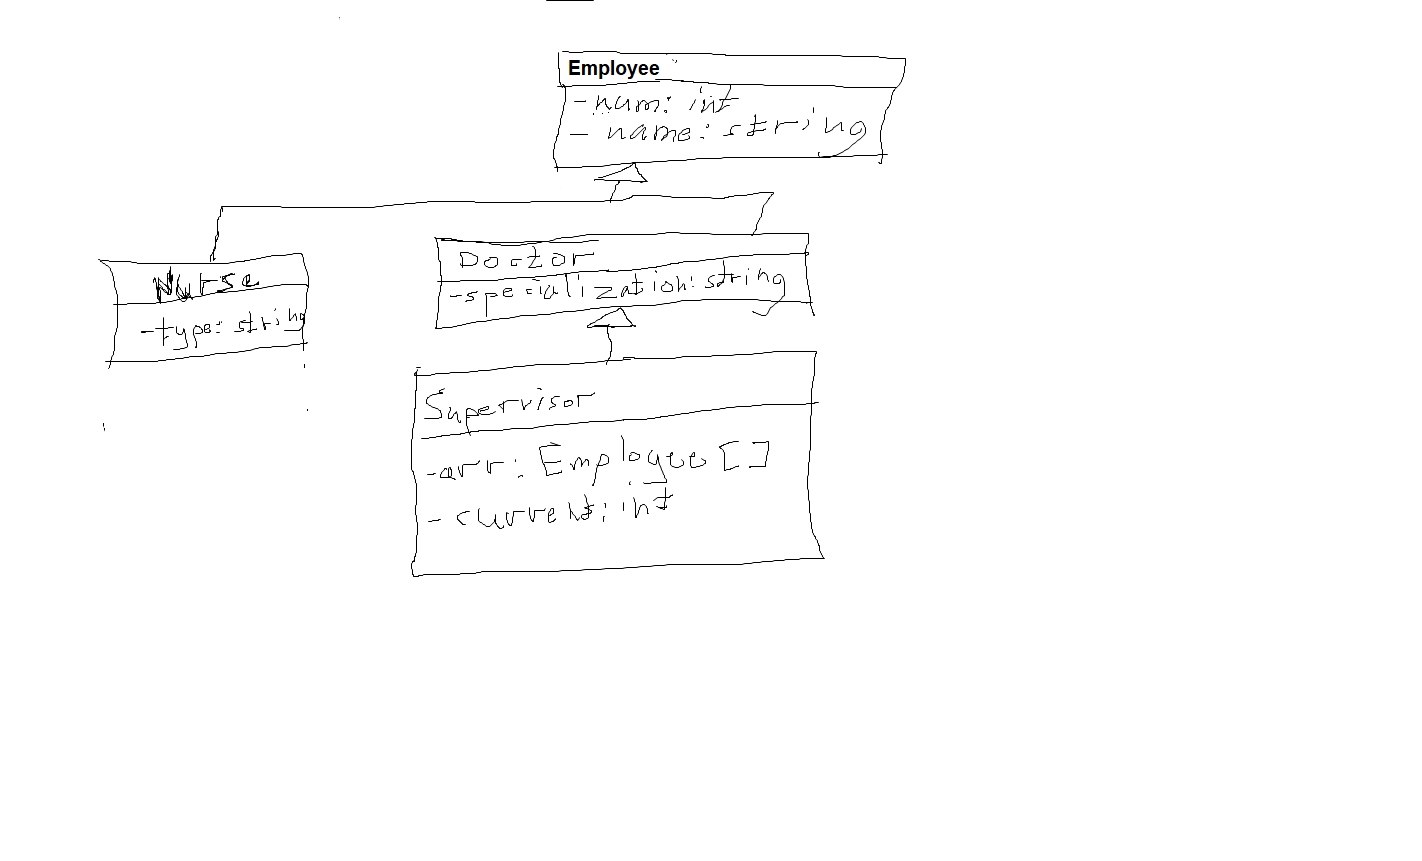 Employee
-num: int
- name: string
Nurse
-type: string
Doctor
-specialization: string
Supervisor
-arr: Employee []
- current: int